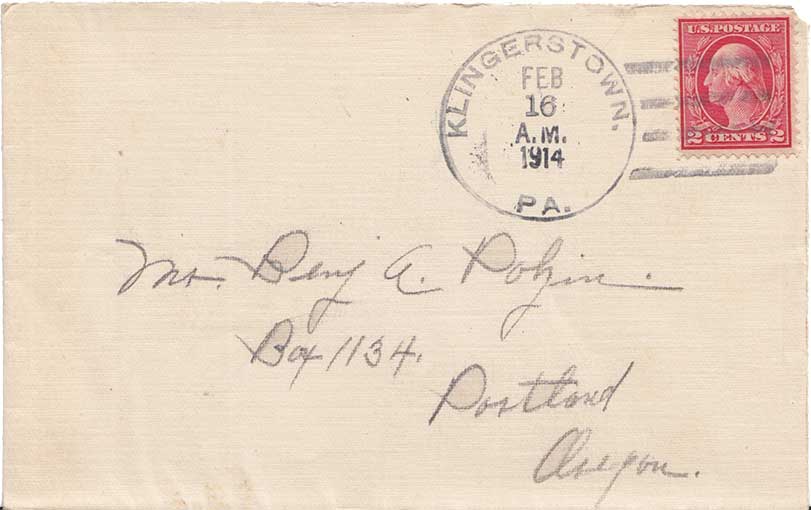 KLINGERSTOWN.
FEB
16
A.M.
1914
PA.
U.S. POSTAGE
2 CENTS 2
Mr. Benj A.
Box 1134.
Portland
Oregon.